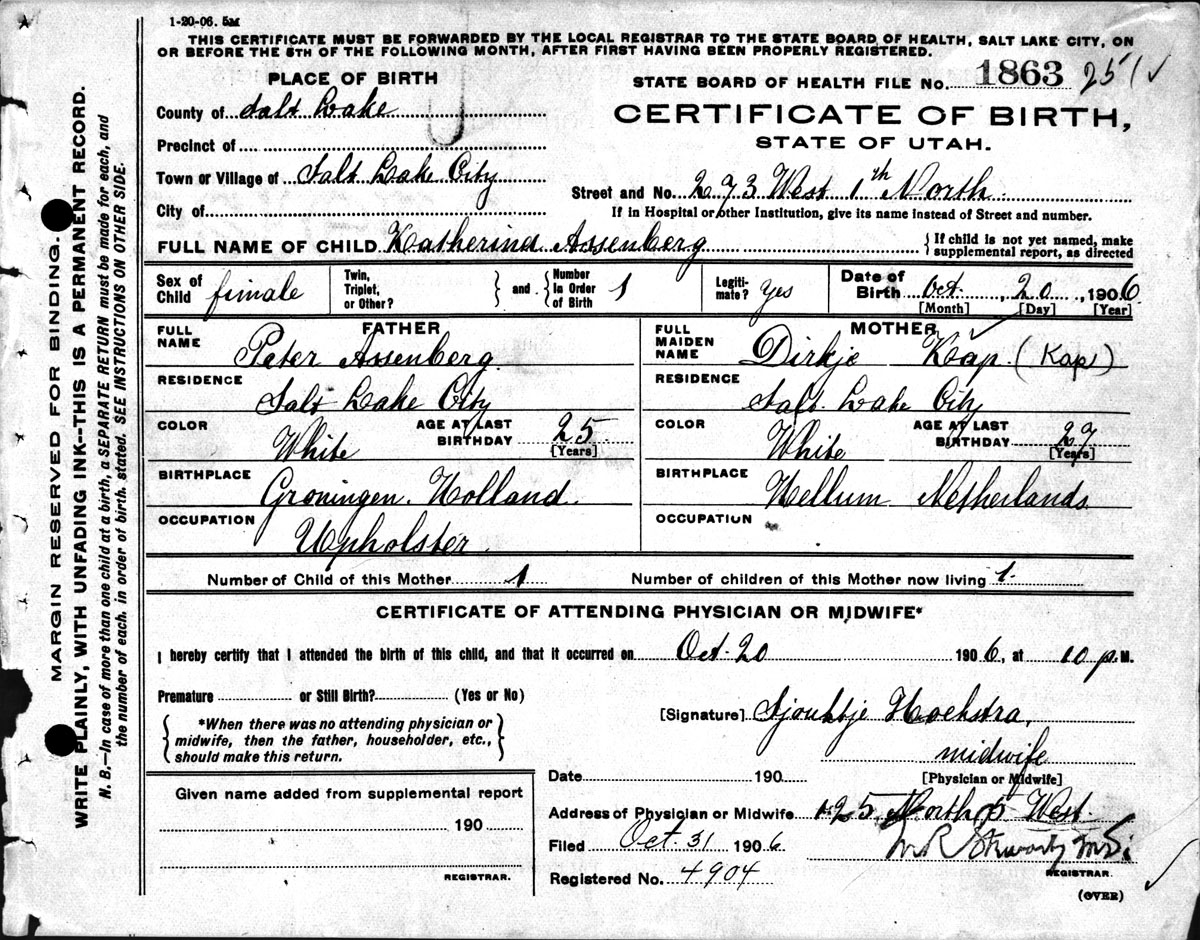 1-20-06. 5M
THIS CERTIFICATE MUST BE FORWARDED BY THE LOCAL REGISTRAR TO THE STATE BOARD OF HEALTH, SALT LAKE CITY, ON
OR BEFORE THE 5TH OF THE FOLLOWING MONTH, AFTER FIRST HAVING BEEN PROPERLY REGISTERED.
PLACE OF BIRTH
STATE BOARD OF HEALTH FILE No. 1863 251 ✓
County of Salt Lake
CERTIFICATE OF BIRTH,
Precinct of
STATE OF UTAH.
Town or Village of Salt Lake City
Street and No. 273 West 1th North
City of
If in Hospital or other Institution, give its name instead of Street and number.
FULL NAME OF CHILD Katherina Assenberg
{ If child is not yet named, make
supplemental report, as directed
Sex of Child female
Twin, Triplet, or Other? } and { Number In Order of Birth 1
Legiti-mate? yes
Date of Birth Oct. 20, 1906
[Month] [Day] [Year]
FATHER
FULL NAME Peter Assenberg
RESIDENCE Salt Lake City
COLOR White AGE AT LAST BIRTHDAY 25 [Years]
BIRTHPLACE Groningen. Holland
OCCUPATION Upholster
MOTHER
FULL MAIDEN NAME Dirkje Kap. (Kap)
RESIDENCE Salt. Lake City
COLOR White AGE AT LAST BIRTHDAY 27 [Years]
BIRTHPLACE Hellum Netherlands
OCCUPATION
Number of Child of this Mother 1 Number of children of this Mother now living 1.
CERTIFICATE OF ATTENDING PHYSICIAN OR MIDWIFE*
I hereby certify that I attended the birth of this child, and that it occurred on Oct. 20 1906, at 10 p.M.
Premature or Still Birth? (Yes or No)
{ *When there was no attending physician or
midwife, then the father, householder, etc.,
should make this return. }
[Signature] Sjouktje Hoekstra,
midwife
[Physician or Midwife]
Date 190
Given name added from supplemental report
190
REGISTRAR.
Address of Physician or Midwife 125 North 5 West.
Filed Oct. 31 1906
REGISTRAR.
Registered No. 4904
(OVER)
MARGIN RESERVED FOR BINDING.
WRITE PLAINLY, WITH UNFADING INK--THIS IS A PERMANENT RECORD.
N. B.—In case of more than one child at a birth, a SEPARATE RETURN must be made for each, and
the number of each, in order of birth, stated. SEE INSTRUCTIONS ON OTHER SIDE.